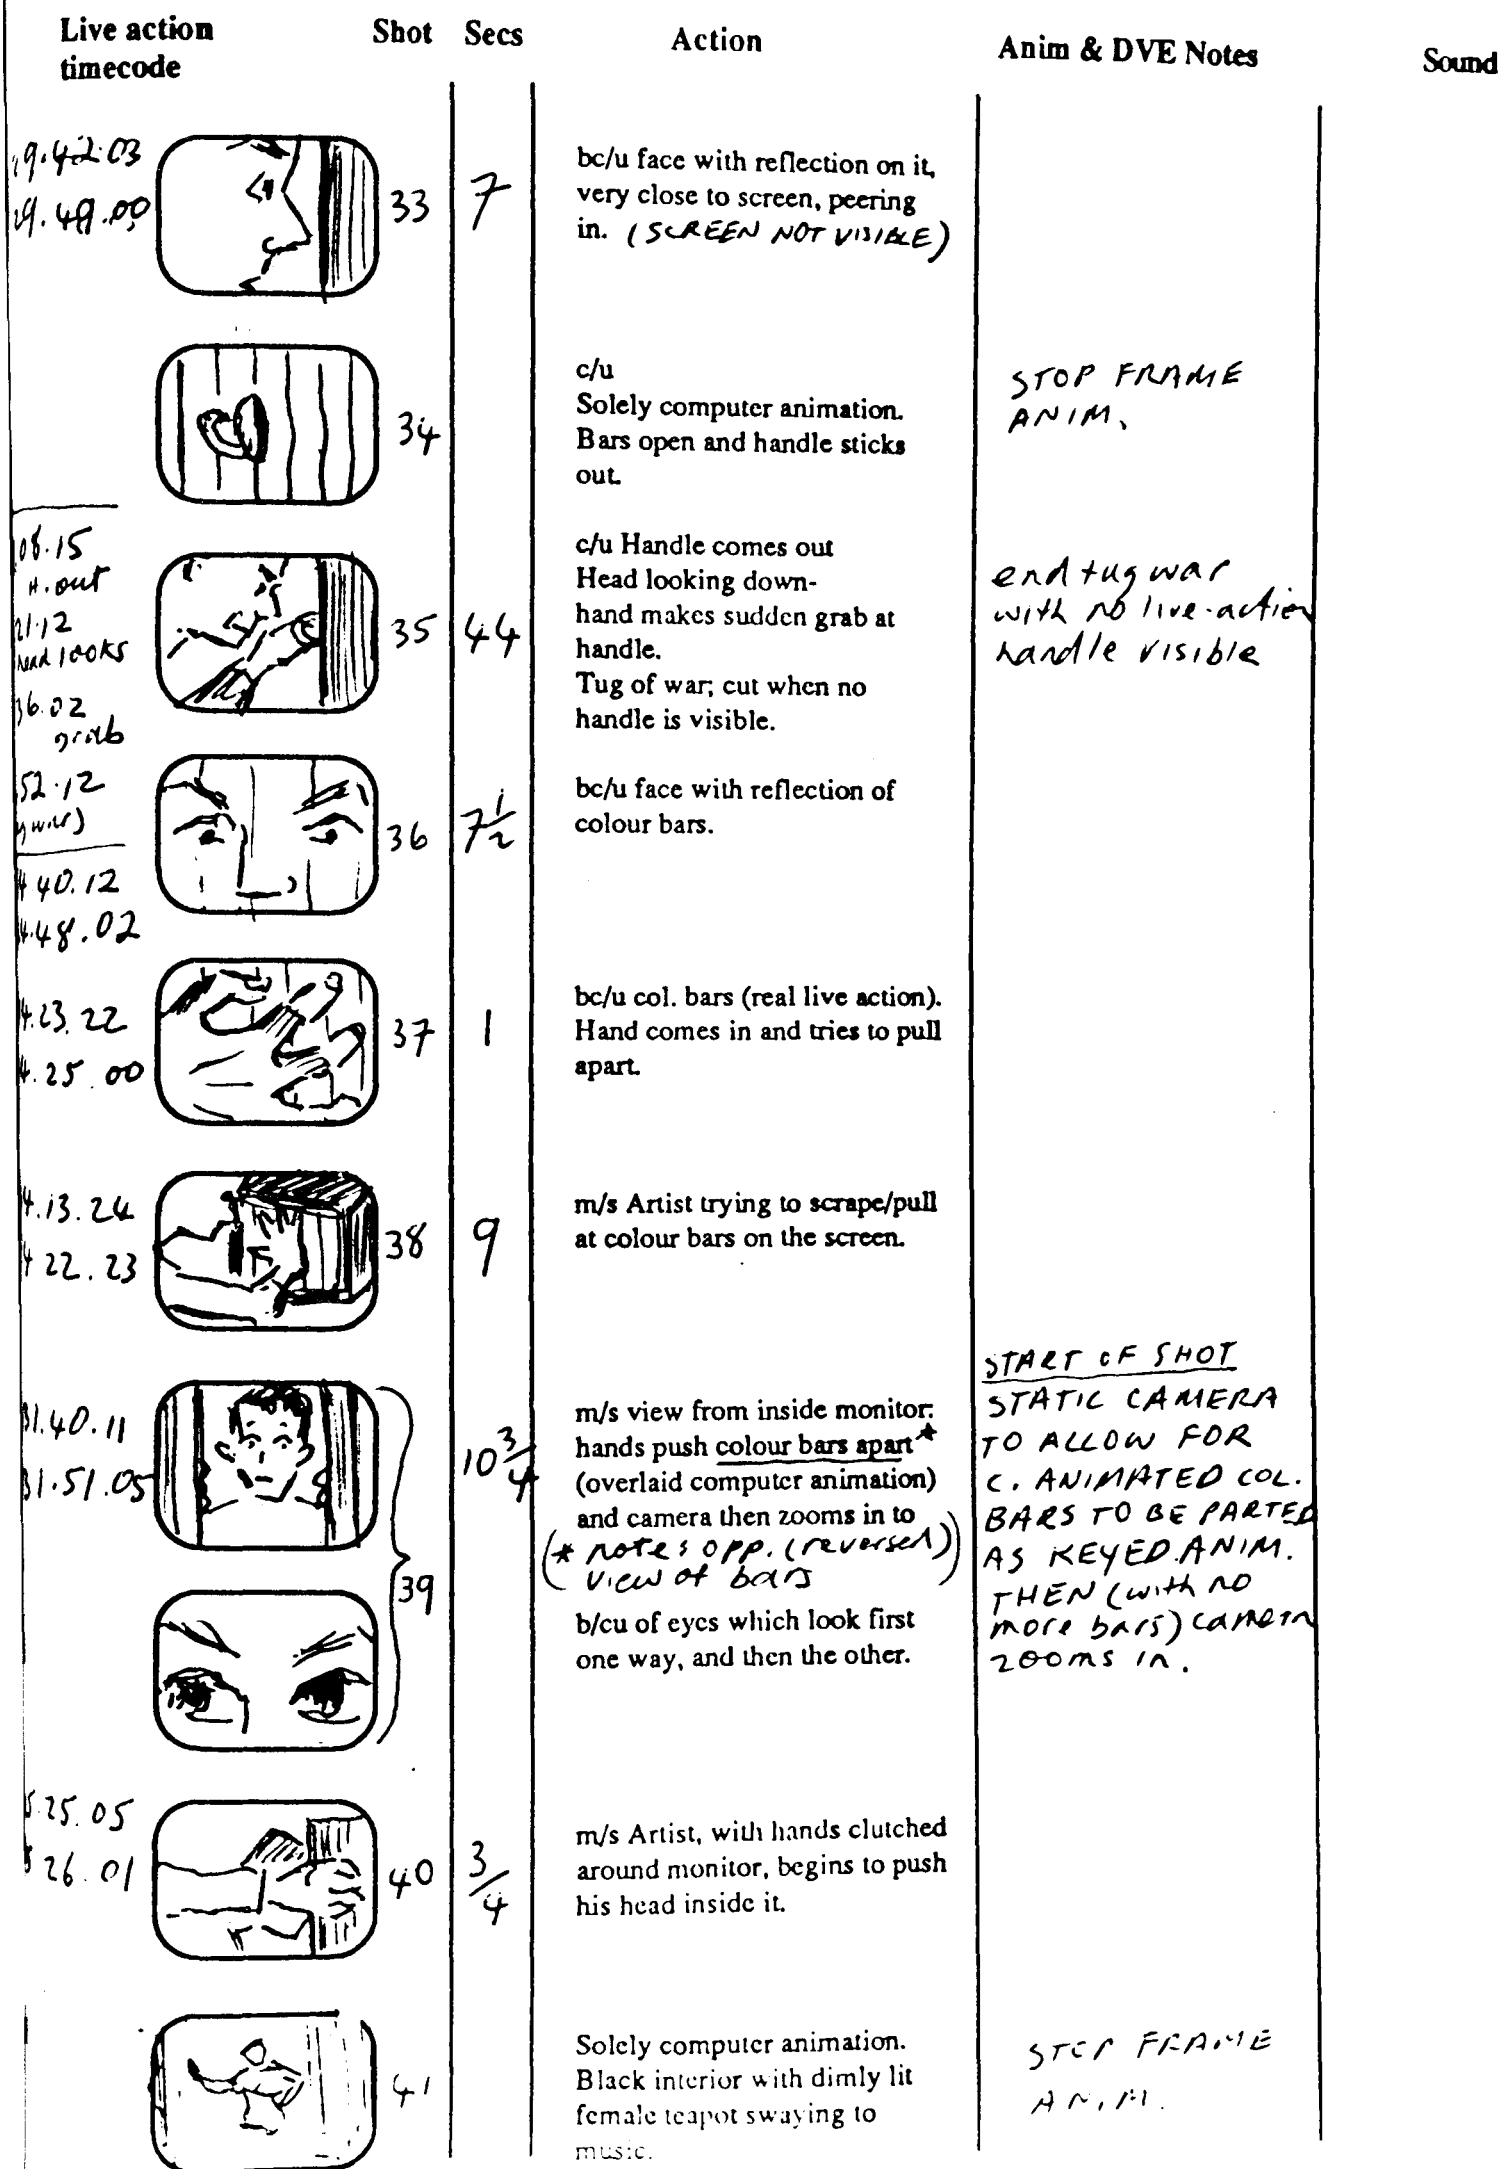 Live action
timecode
Shot Secs Action Anim & DVE Notes Sound
9.42.03
29.49.00
33
7
bc/u face with reflection on it,
very close to screen, peering
in. (SCREEN NOT VISIBLE)
34
c/u
Solely computer animation.
Bars open and handle sticks
out.
STOP FRAME
ANIM.
08.15
H. out
21.12
head looks
36.02
grab
52.12
35
44
c/u Handle comes out
Head looking down-
hand makes sudden grab at
handle.
Tug of war; cut when no
handle is visible.
end tug war
with no live-action
handle visible
40.12
4.48.02
36
7 1/2
bc/u face with reflection of
colour bars.
4.23.22
4.25.00
37
1
bc/u col. bars (real live action).
Hand comes in and tries to pull
apart.
4.13.24
4 22.23
38
9
m/s Artist trying to scrape/pull
at colour bars on the screen.
31.40.11
31.51.05
39
10 3/4
m/s view from inside monitor:
hands push colour bars apart*
(overlaid computer animation)
and camera then zooms in to
(* note: opp. (reversed)
view of bars)
b/cu of eyes which look first
one way, and then the other.
START OF SHOT
STATIC CAMERA
TO ALLOW FOR
C. ANIMATED COL.
BARS TO BE PARTED
AS KEYED ANIM.
THEN (with no
more bars) camera
zooms in.
5.25.05
26.01
40
3/4
m/s Artist, with hands clutched
around monitor, begins to push
his head inside it.
41
Solely computer animation.
Black interior with dimly lit
female teapot swaying to
music.
STOP FRAME
ANIM.